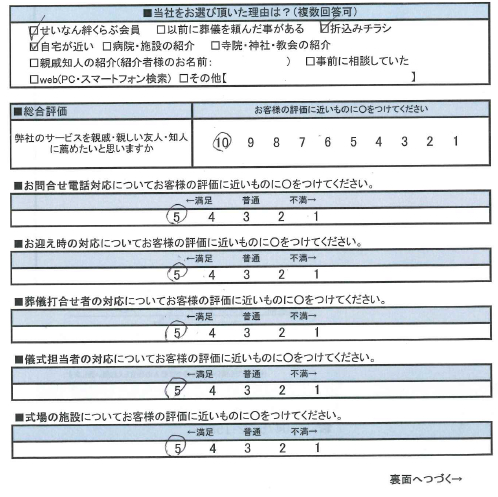 ■当社をお選び頂いた理由は？(複数回答可)
☑せいなん絆くらぶ会員 □以前に葬儀を頼んだ事がある ☑折込みチラシ
☑自宅が近い □病院・施設の紹介 □寺院・神社・教会の紹介
□親戚知人の紹介(紹介者様のお名前: ) □事前に相談していた
□web(PC・スマートフォン検索) □その他【 】
■総合評価 お客様の評価に近いものに〇をつけてください
弊社のサービスを親戚・親しい友人・知人に薦めたいと思いますか
10 9 8 7 6 5 4 3 2 1
■お問合せ電話対応についてお客様の評価に近いものに〇をつけてください。
←満足 普通 不満→
5 4 3 2 1
■お迎え時の対応についてお客様の評価に近いものに〇をつけてください。
←満足 普通 不満→
5 4 3 2 1
■葬儀打合せ者の対応についてお客様の評価に近いものに〇をつけてください。
←満足 普通 不満→
5 4 3 2 1
■儀式担当者の対応についてお客様の評価に近いものに〇をつけてください。
←満足 普通 不満→
5 4 3 2 1
■式場の施設についてお客様の評価に近いものに〇をつけてください。
←満足 普通 不満→
5 4 3 2 1
裏面へつづく→